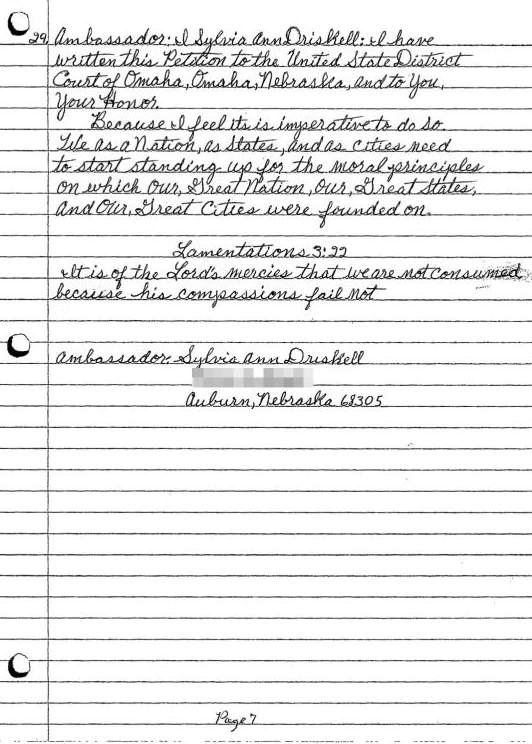 29. Ambassador: I Sylvia Ann Driskell: I have
written this Petition to the United State District
Court of Omaha, Omaha, Nebraska, and to You,
Your Honor.
Because I feel its is imperative to do so.
We as a Nation, as States, and as Cities need
to start standing up for the moral principles
on which Our, Great Nation, Our, Great States,
and Our, Great Cities were founded on.
Lamentations 3:22
It is of the Lord's mercies that we are not consumed
because his compassions fail not
Ambassador: Sylvia Ann Driskell
Auburn, Nebraska 68305
Page 7